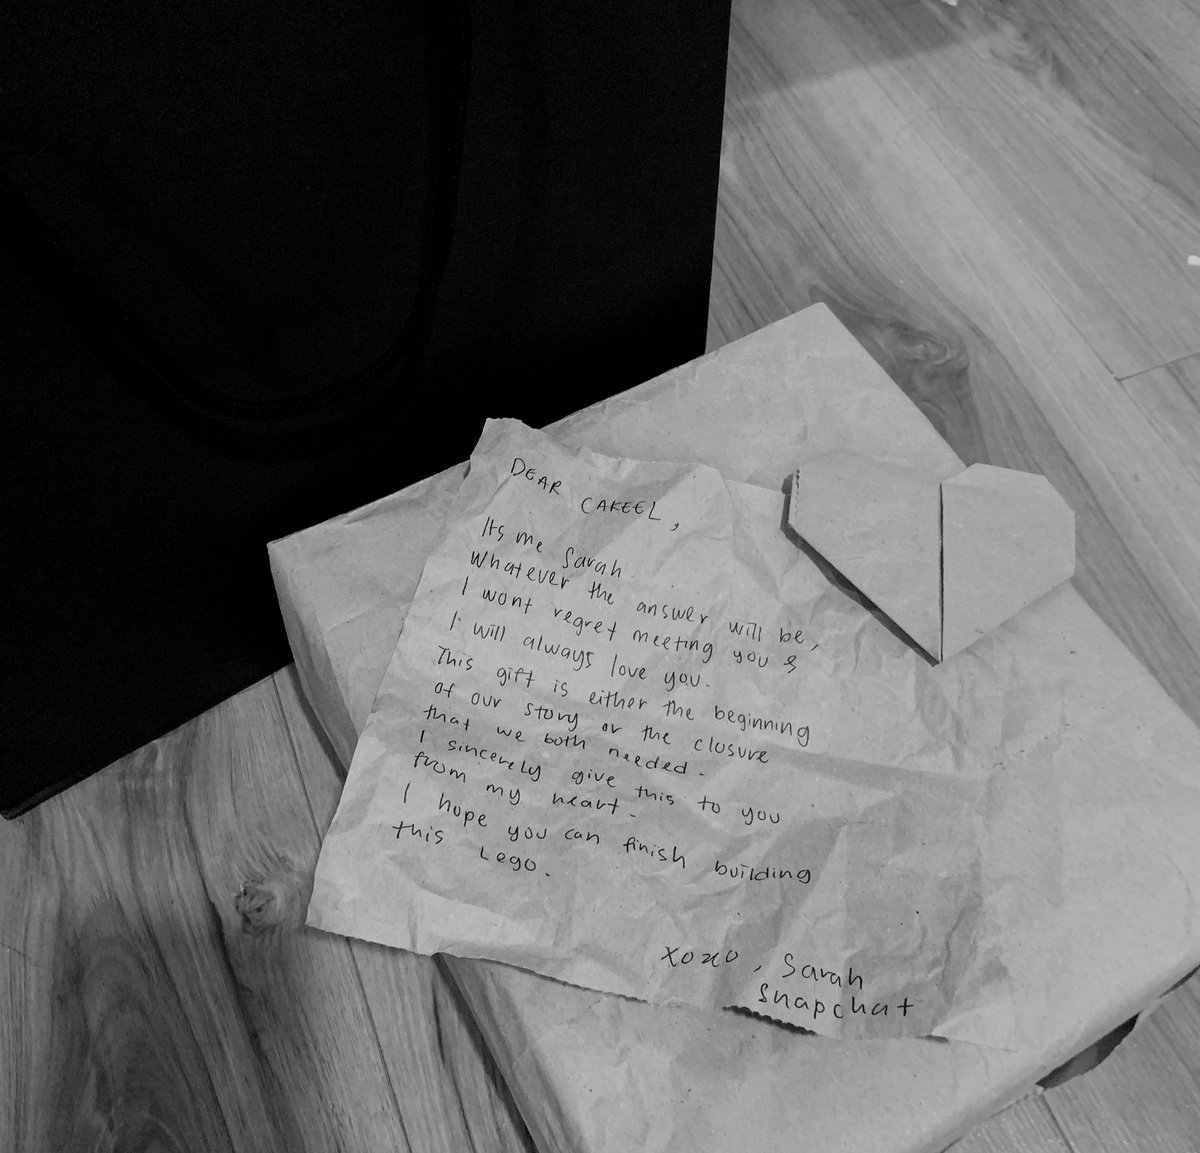 DEAR CAKEEL,
Its me Sarah.
Whatever the answer will be,
I wont regret meeting you &
I will always love you.
This gift is either the beginning
of our story or the closure
that we both needed.
I sincerely give this to you
from my heart.
I hope you can finish building
this Lego.
xoxo, Sarah
Snapchat